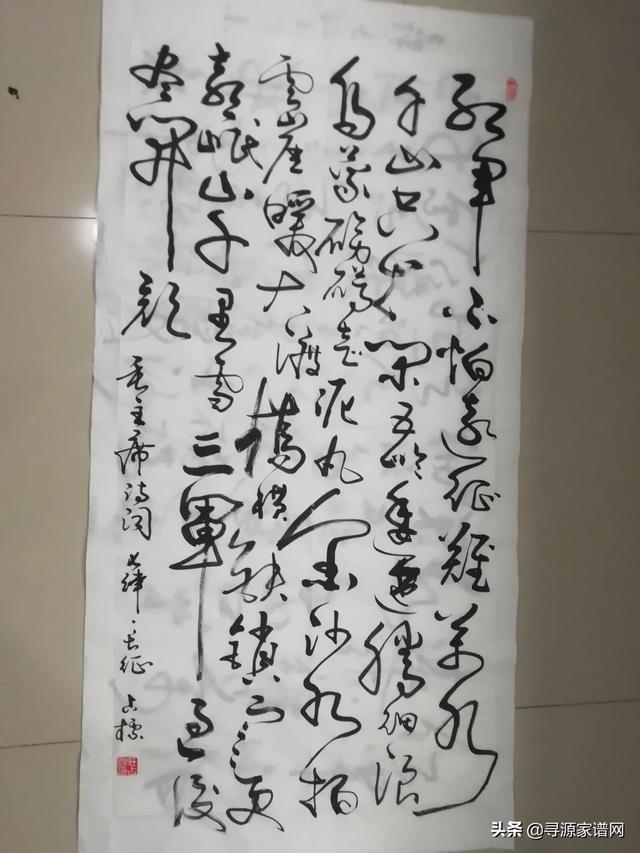 紅軍不怕遠征難萬水
千山只等閑五嶺逶迤騰細浪
烏蒙磅礴走泥丸金沙水拍
雲崖暖大渡橋橫鐵鎖寒更
喜岷山千里雪三軍過後
盡開顏
毛主席詩詞 七律·長征
头条 @寻源家谱网